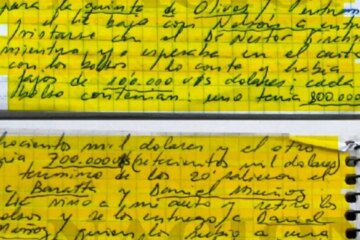 para la quinta de Olivos, entra
el Lic bajo con Nelson a
con el Dr Nestor
mientras yo esperaba en el
con los bolsos, lo conto y habia
fajos de 100.000 U$S dolares, cada
bolso contenian: uno tenia 800.000
hocientos mil dolares y el otro
700.000 U$S (setecientos mil dolares)
termino de los 20' salieron el
Baratta y Daniel Muñoz
vino a mi auto y retiro los
bolsos y se los entrego a Daniel
Muñoz quien los subio a una